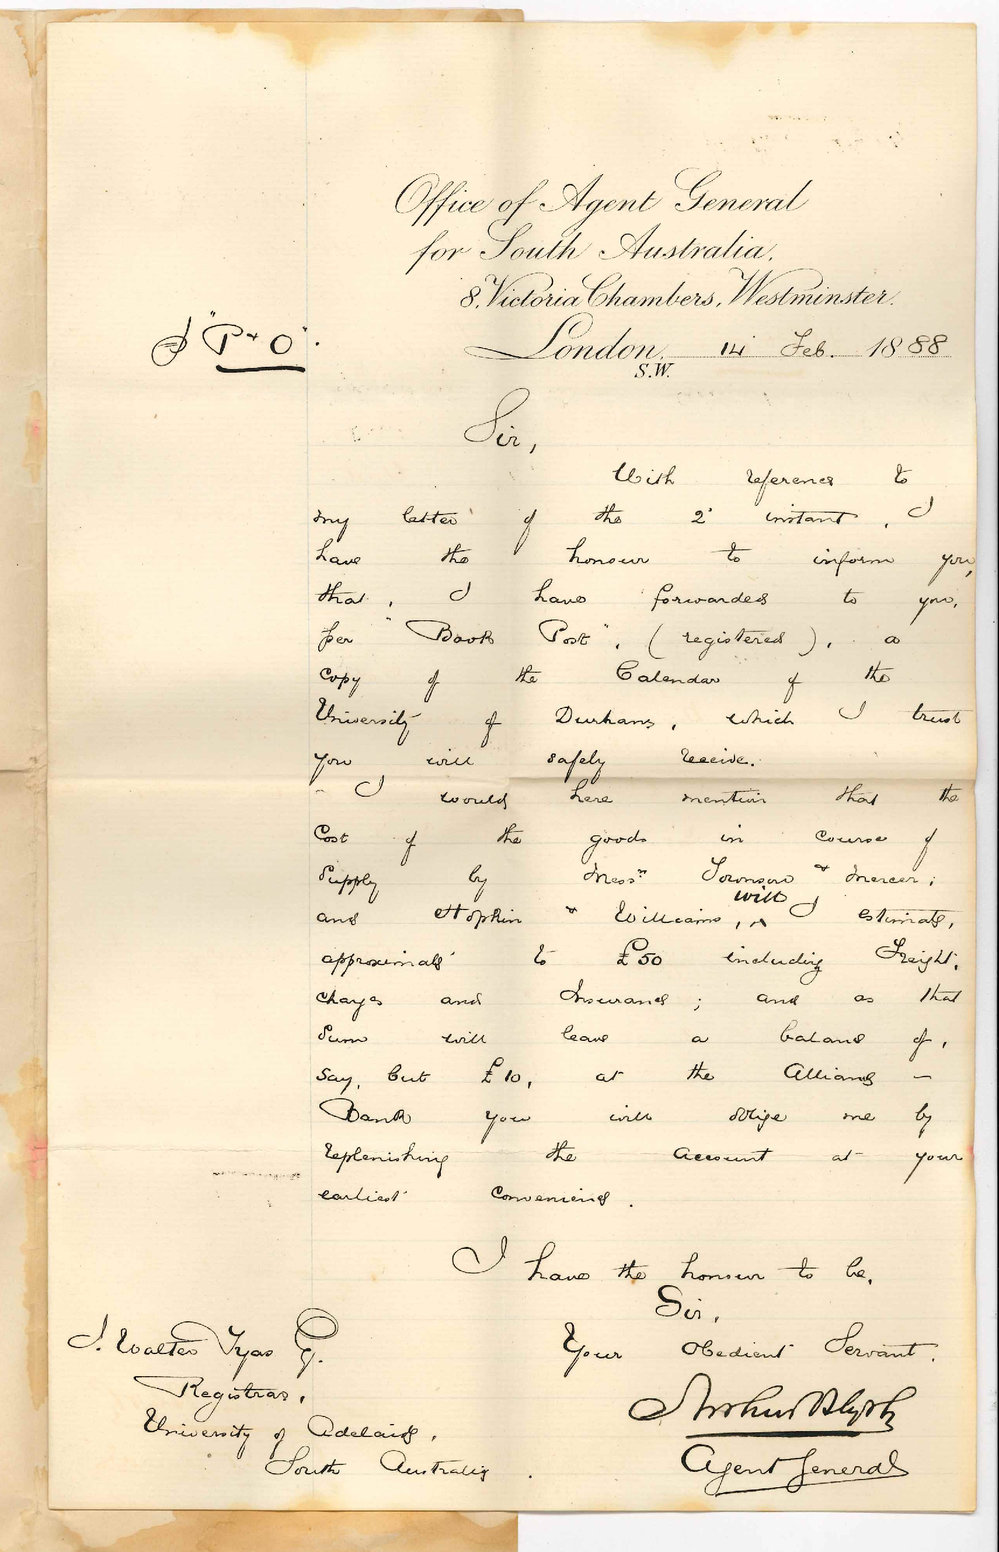 Office of Agent General
for South Australia,
8, Victoria Chambers, Westminster.
"P & O".
London, 14 Feb. 1888
S.W.
Sir,
With reference to
my letter of the 2' instant, I
have the honour to inform you,
that, I have forwarded to you,
per "Book Post", (registered), a
copy of the Calendar of the
University of Durham, which I trust
you will safely receive.
I would here mention that the
Cost of the goods in course of
Supply by Mess.rs Townson & Mercer;
will
and Hopkin & Williams, ^ I estimate,
approximate to £50 including Freight,
charges and Insurance; and as that
Sum will leave a balance of,
say, but £10, at the Alliance –
Bank you will oblige me by
replenishing the Account at your
earliest convenience.
I have the honour to be,
Sir,
Your Obedient Servant.
J. Walter Tyas Esq.
Registrar,
University of Adelaide,
South Australia.
Arthur Blyth
Agent General